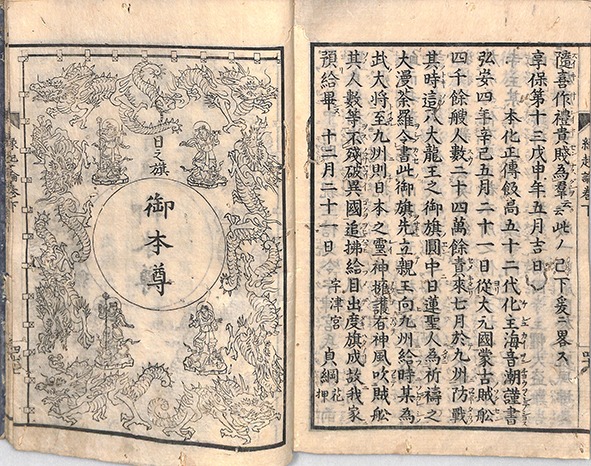 隨喜作禮貴賤為羣云云 此ノ已下爰ニ畧ス
享保第十三戊申年五月吉日
本化正傳飯高五十二代化主海音潮謹書
弘安四年辛己五月二十一日從大元國蒙古賊舩
四千餘艘人數二十四萬餘責來七月於九州防戰
其時這八大龍王之御旗圓中日蓮聖人為祈禱之
大漫荼羅令書此御旗先立親王向九州給時某為
武大将至九州則日本之靈神擁護有神風吹賊舩
其人數等不殘破異國追拂給目出度旗成故我家
預給畢 十二月二十一日 宇津宮 貞綱 花押
日之旗
御本尊